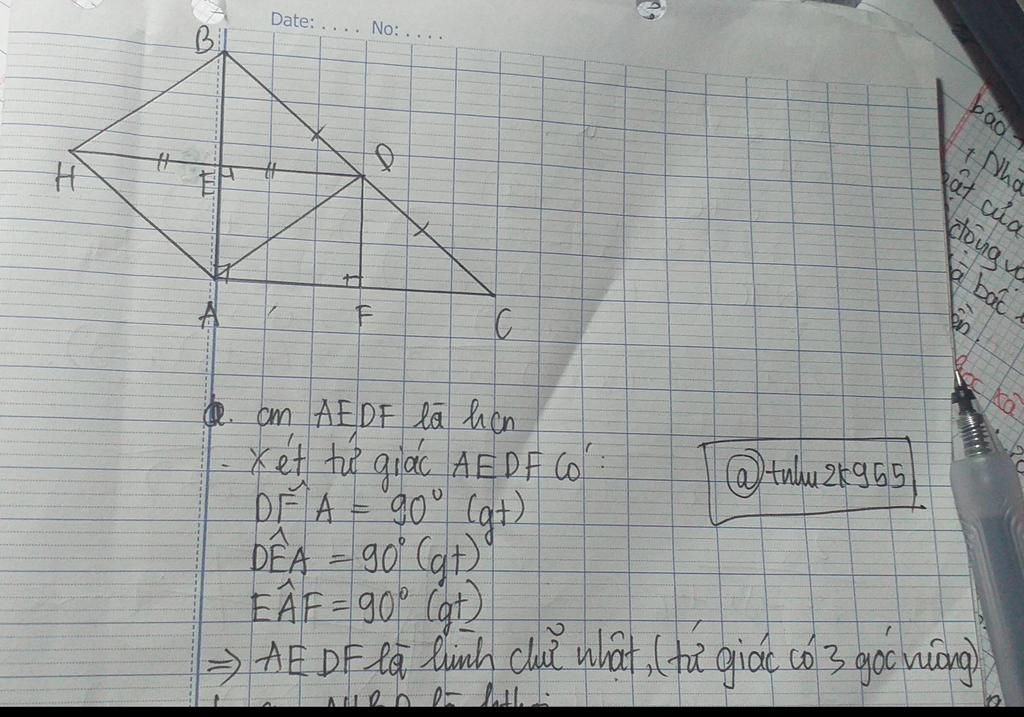 Date: .... No: ....
B
D
H
E
A
F
C
a. cm AEDF là hcn
- Xét tứ giác AEDF có:
DF̂A = 90° (gt)
DÊA = 90° (gt)
EÂF = 90° (gt)
⇒ AEDF là hình chữ nhật, (tứ giác có 3 góc vuông)
@tnhu2k955
báo
+ Nhà
của